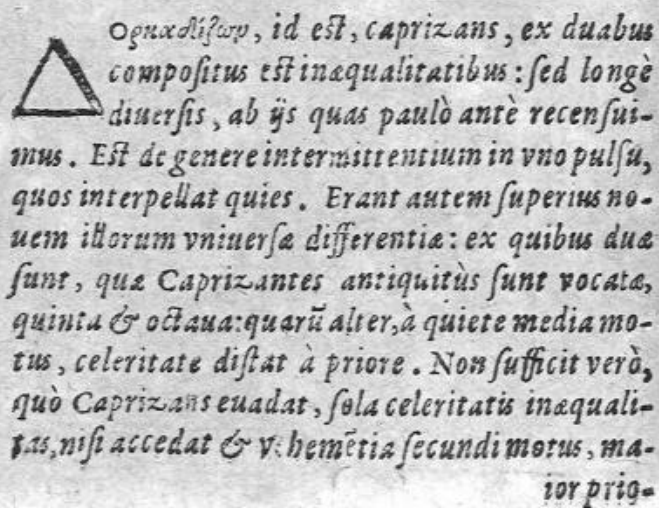 Δορκαδίζων, id eſt, caprizans, ex duabus
compoſitus eſt inæqualitatibus: ſed longè
diuerſis, ab ijs quas paulò antè recenſui-
mus. Eſt de genere intermittentium in vno pulſu,
quos interpellat quies. Erant autem ſuperius no-
uem illorum vniuerſæ differentiæ: ex quibus duæ
ſunt, quæ Caprizantes antiquitùs ſunt vocatæ,
quinta & octaua: quarũ alter, à quiete media mo-
tus, celeritate diſtat à priore. Non ſufficit verò,
quò Caprizans euadat, ſola celeritatis inæquali-
tas, niſi accedat & vehemẽtia ſecundi motus, ma-
ior prio-